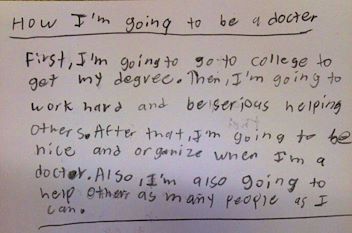 How I'm going to be a docter
First, I'm going to go to college to
get my degree. Then, I'm going to
work hard and be serious helping
others. After that, I'm going to be
nice and organize when I'm a
doctor. Also, I'm also going to
help others as many people as I
can.